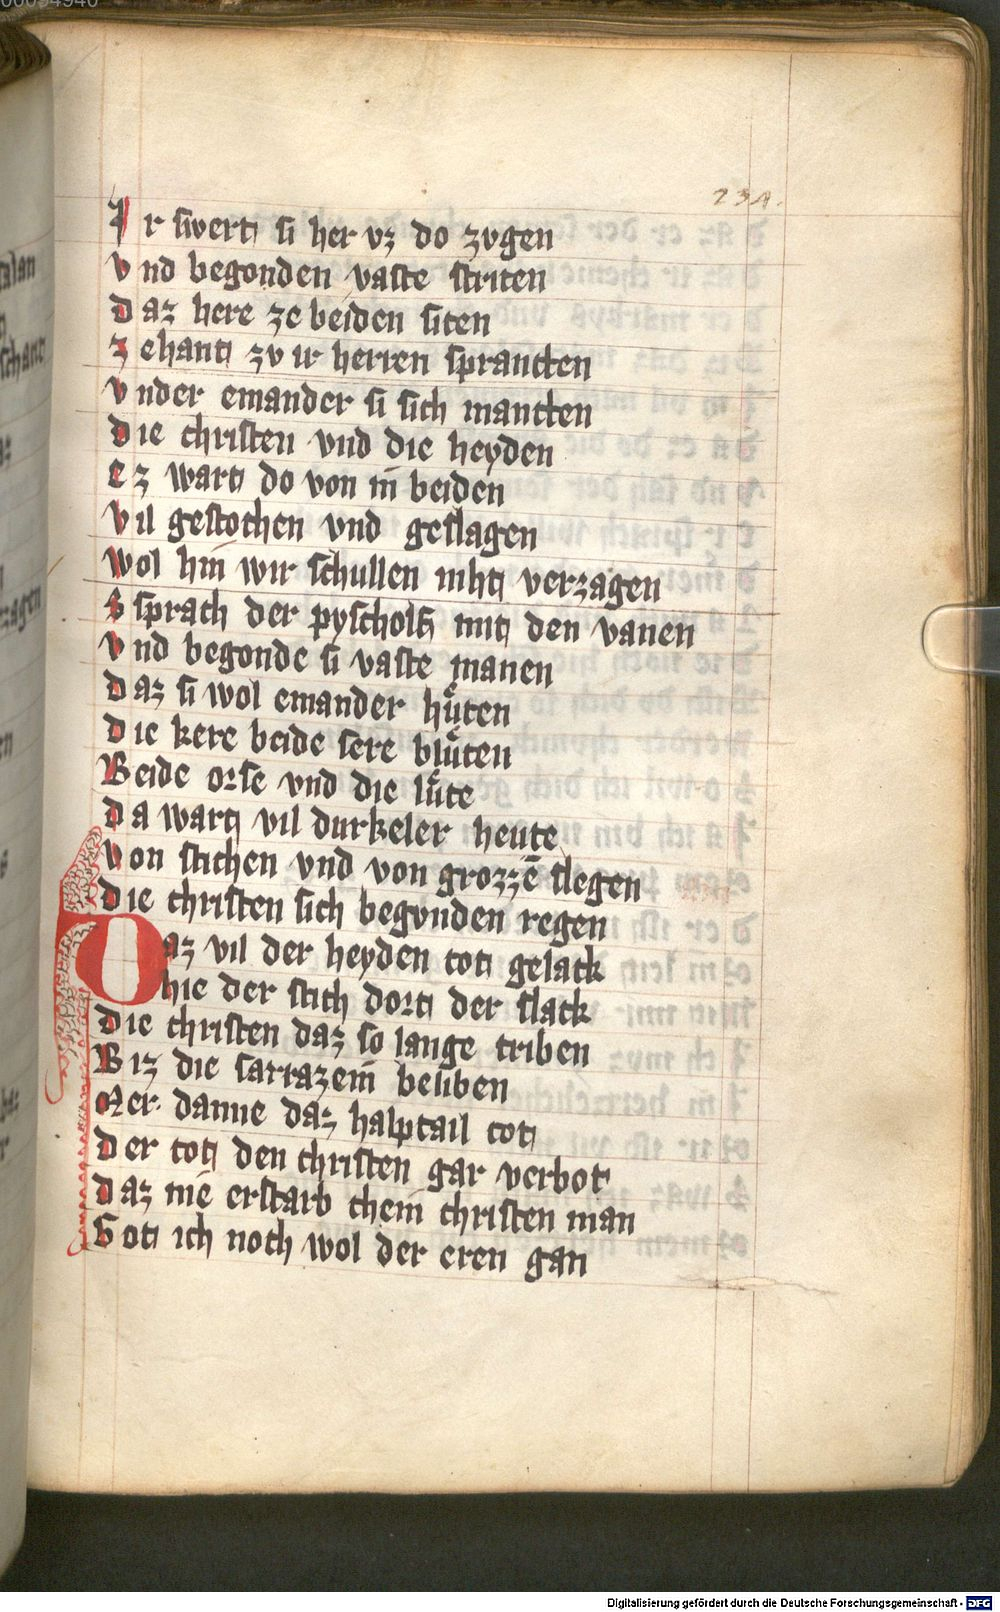 231.
Ir swert si her vz do zvgen
vnd begonden vaste striten
Daz here ze beiden siten
zehant zv ir herren sprancten
vnder einander si sich mancten
Die christen vnd die heyden
Ez wart do von in̄ beiden
Vil gestochen vnd geslagen
Wol hin wir schullen niht verzagen
Sprach der pyscholf mit den vanen
vnd begonde si vaste manen
Daz si wol einander huͤten
Die kere beide sere bluͤten
Beide orse vnd die luͤte
Da wart vil durkeler heute
Von stichen vnd von grozzē slegen
Die christen sich begvnden regen
Daz vil der heyden tot gelack
hie der stich dort der slack
Die christen daz so lange triben
Biz die sarrazein beliben
Mer danne daz halptail tot
Der tot den christen gar verbot
Daz nie erstarb chein christen man
Got ich noch wol der eren gan
Digitalisierung gefördert durch die Deutsche Forschungsgemeinschaft - DFG